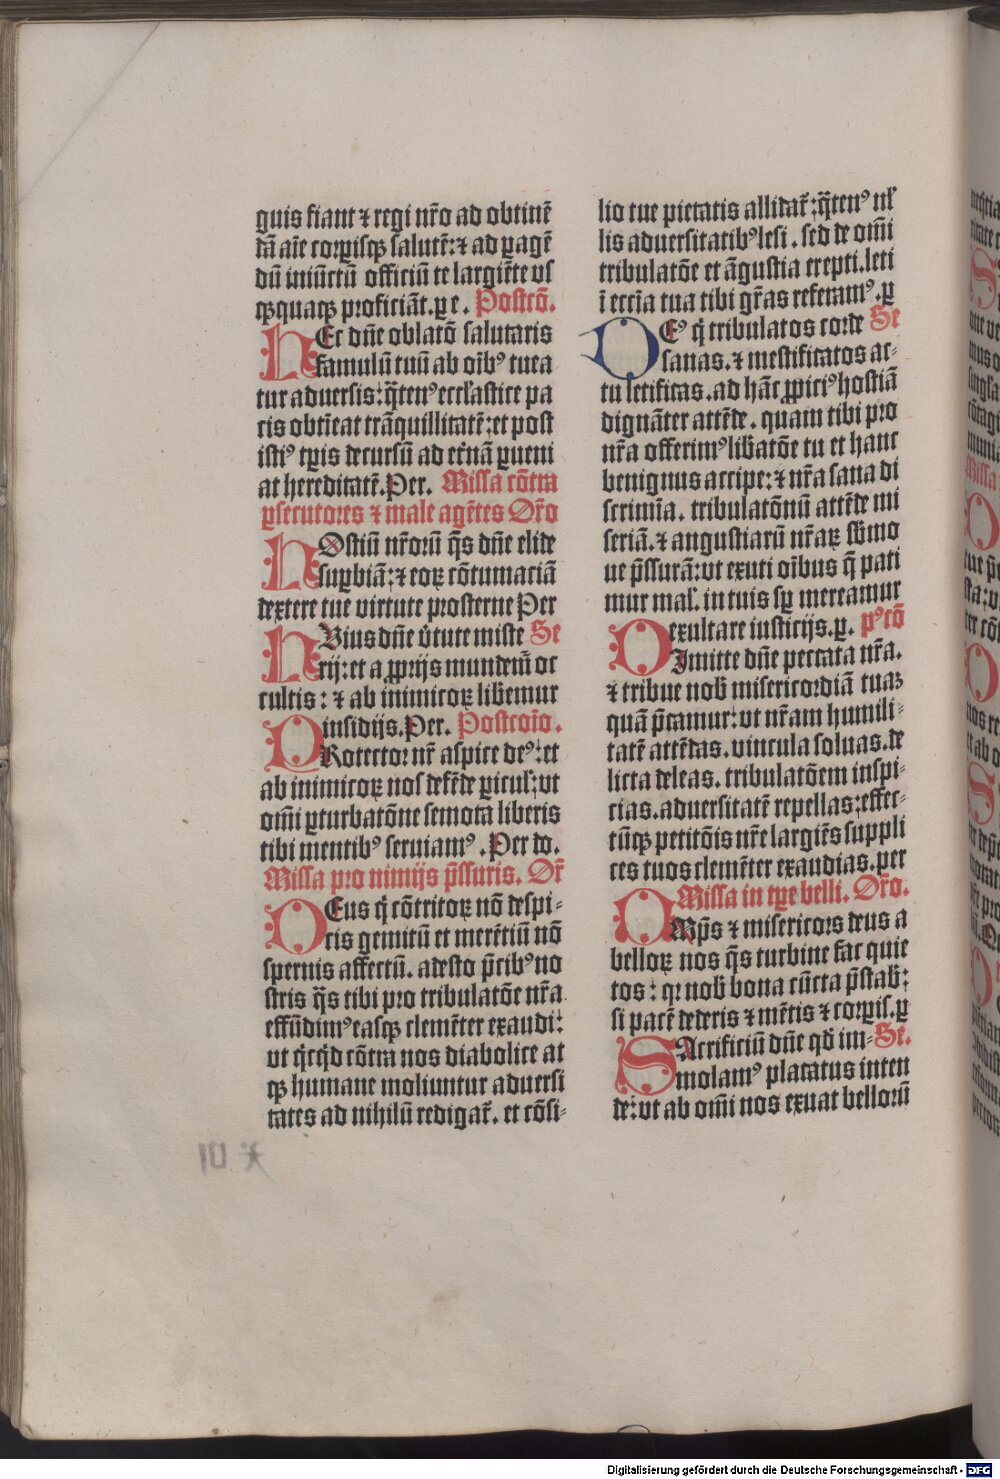 guis fiant ⁊ regi nr̄o ad obtinē
dā aīe corꝑisqꝫ salutē: ⁊ ad ꝑagē
dū iniūctū officiū te largiēte vs
qꝫquaqꝫ proficiāt. ꝑ e. Postcō.
HEc dn̄e oblatō salutaris
famulū tuū ab oībꝰ tuea
tur aduersis: q̄tenꝰ eccl'astice pa
cis obtīeat trāquillitatē: et post
istiꝰ tꝑis decursū ad et̄nā ꝑueni
at hereditatē. Per. Missa cōtra
ꝑsecutores ⁊ male agētes Or̄o
HOstiū nr̄orū q̄s dn̄e elide
suꝑbiā: ⁊ eoꝝ cōtumaciā
dextere tue virtute prosterne Per
HVius dn̄e v̄tute miste Se
rij: et a ꝓprijs mundem̄ oc
cultis: ⁊ ab inimicoꝝ libemur
insidijs. Per. Postcoīo.
PRotector nr̄ aspice deꝰ: et
ab inimicoꝝ nos defēde ꝑicul': vt
om̄i ꝑturbatōne semota liberis
tibi mentibꝰ seruiamꝰ. Per do.
Missa pro nimijs p̄ssuris. Or̄
DEus q̄ cōtritoꝝ nō despi-
cis gemitū et merētiū nō
spernis affectū. adesto p̄cibꝰ no
stris q̄s tibi pro tribulatōe nr̄a
effūdimꝰ easqꝫ clemēter exaudi:
vt q̄cq̄d cōtra nos diabolice at
qꝫ humane moliuntur aduersi
tates ad nihilū redigat̄. et cōsi-
lio tue pietatis allidat̄: q̄tenꝰ nl'
lis aduersitatibꝰ lesi. sed de om̄i
tribulatōe et āgustia erepti. leti
ī eccīa tua tibi gr̄as referamꝰ. ꝑ
DEꝰ q̄ tribulatos corde Se
sanas. ⁊ mestificatos ac-
tu letificas. ad hāc ꝓpiciꝰ hostiā
dignāter attēde. quam tibi pro
nr̄a offerimꝰ lib̄atōe tu et hanc
benignus accipe: ⁊ nr̄a sana di
scrimīa. tribulatōnū attēde mi
seriā. ⁊ angustiarū nr̄aꝝ sb̄mo
ue p̄ssurā: vt exuti oībus q̄ pati
mur mal'. in tuis sꝑ mereamur
exultare iusticijs. ꝑ. pꝰcō
DImitte dn̄e peccata nr̄a.
⁊ tribue nob̄ misericordiā tuaꝫ
quā p̄camur: vt nr̄am humili-
tatē attēdas. vincula soluas. de
licta deleas. tribulatōem inspi-
cias. aduersitatē repellas: effec-
tūqꝫ petitōis nr̄e largiēs suppli
ces tuos clemēter exaudias. per
Missa in tꝑe belli. Or̄o.
OMp̄s ⁊ misericors deus a
belloꝝ nos q̄s turbine fac quie
tos: qꝛ nob̄ bona cūcta p̄stab̄:
si pacē dederis ⁊ mētis ⁊ corꝑis. ꝑ
SAcrificiū dn̄e qd̄ im- Se.
molamꝰ placatus inten
de: vt ab om̄i nos exuat bellorū
Digitalisierung gefördert durch die Deutsche Forschungsgemeinschaft - DFG